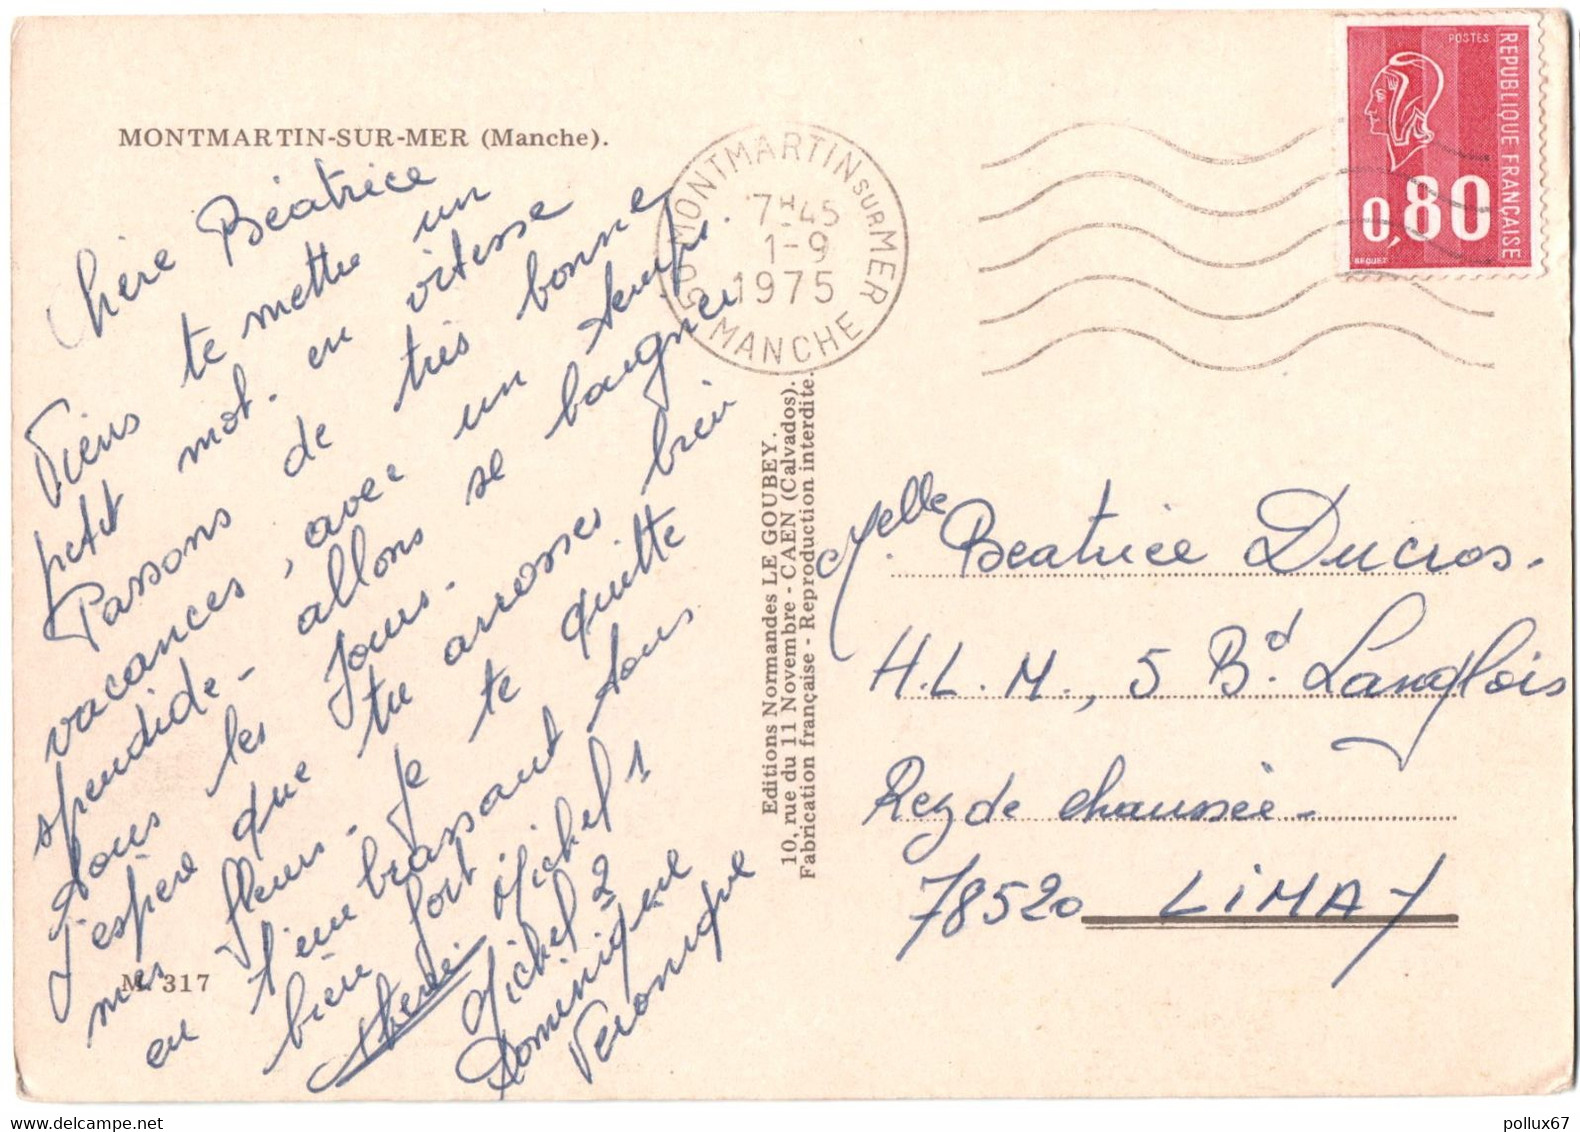 MONTMARTIN-SUR-MER (Manche).
Chère Béatrice
Viens te mettre un
petit mot. en vitesse
Passons de très bonne
vacances, avec un temps.
spendide - allons se baigner
tous les jours.
j'espère que tu arroses bien
mes fleurs. je te quitte
en t'embrassant tous
bien fort Michel 1
Michel 2
Dominique
Veronique
M. 317
MONTMARTIN SUR MER
7H45
1-9
1975
50 MANCHE
POSTES
REPUBLIQUE FRANÇAISE
0,80
BEQUET
Editions Normandes LE GOUBEY.
10, rue du 11 Novembre - CAEN (Calvados).
Fabrication française - Reproduction interdite.
Melle Beatrice Ducros.
H.L.M., 5 Bd. Langlois
Rez de chaussée -
78520 LIMAY
delcampe.net
pollux67